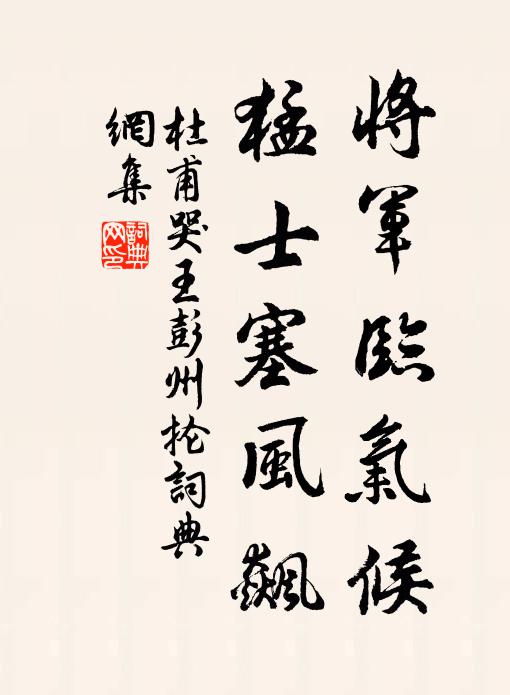 將軍臨氣候
猛士塞風飆
杜甫哭王彭州抡詞典
網集
詞典
网印